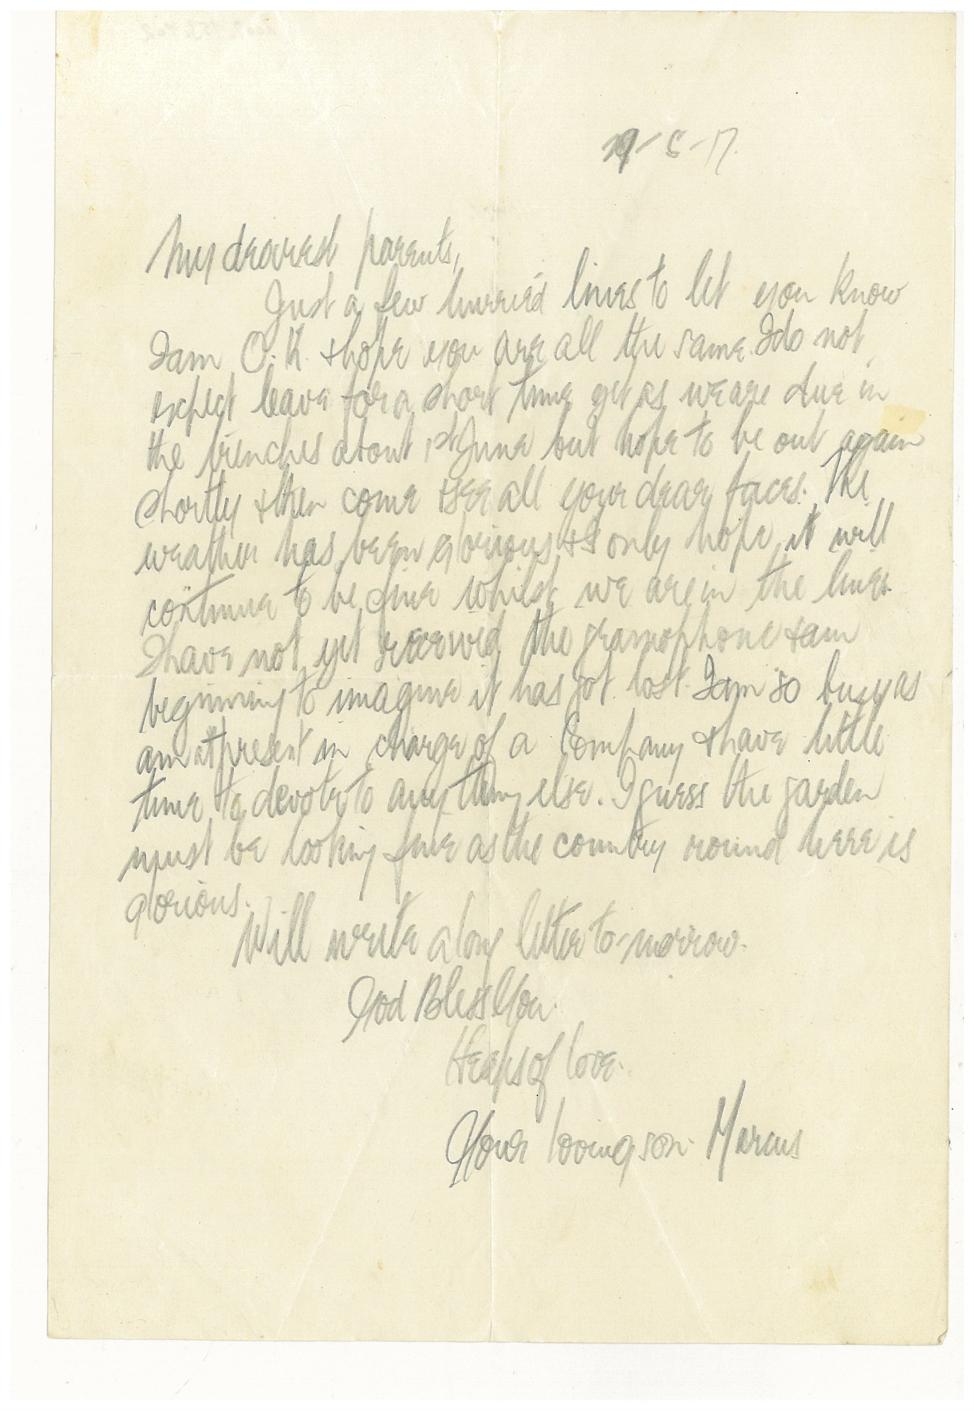 29-5-17.
My dearest parents,
Just a few hurried lines to let you know
I am O.K. & hope you are all the same. I do not
expect leave for a short time yet as we are due in
the trenches about 1st June but hope to be out again
shortly & then come & see all your dear faces. The
weather has been glorious & I only hope it will
continue to be fine whilst we are in the lines.
I have not yet received the gramophone & am
beginning to imagine it has got lost. I am so busy as
am at present in charge of a Company & have little
time to devote to anything else. I guess the garden
must be looking fine as the country round here is
glorious.
Will write a long letter to-morrow.
God Bless You.
Heaps of love.
Your loving son Marcus